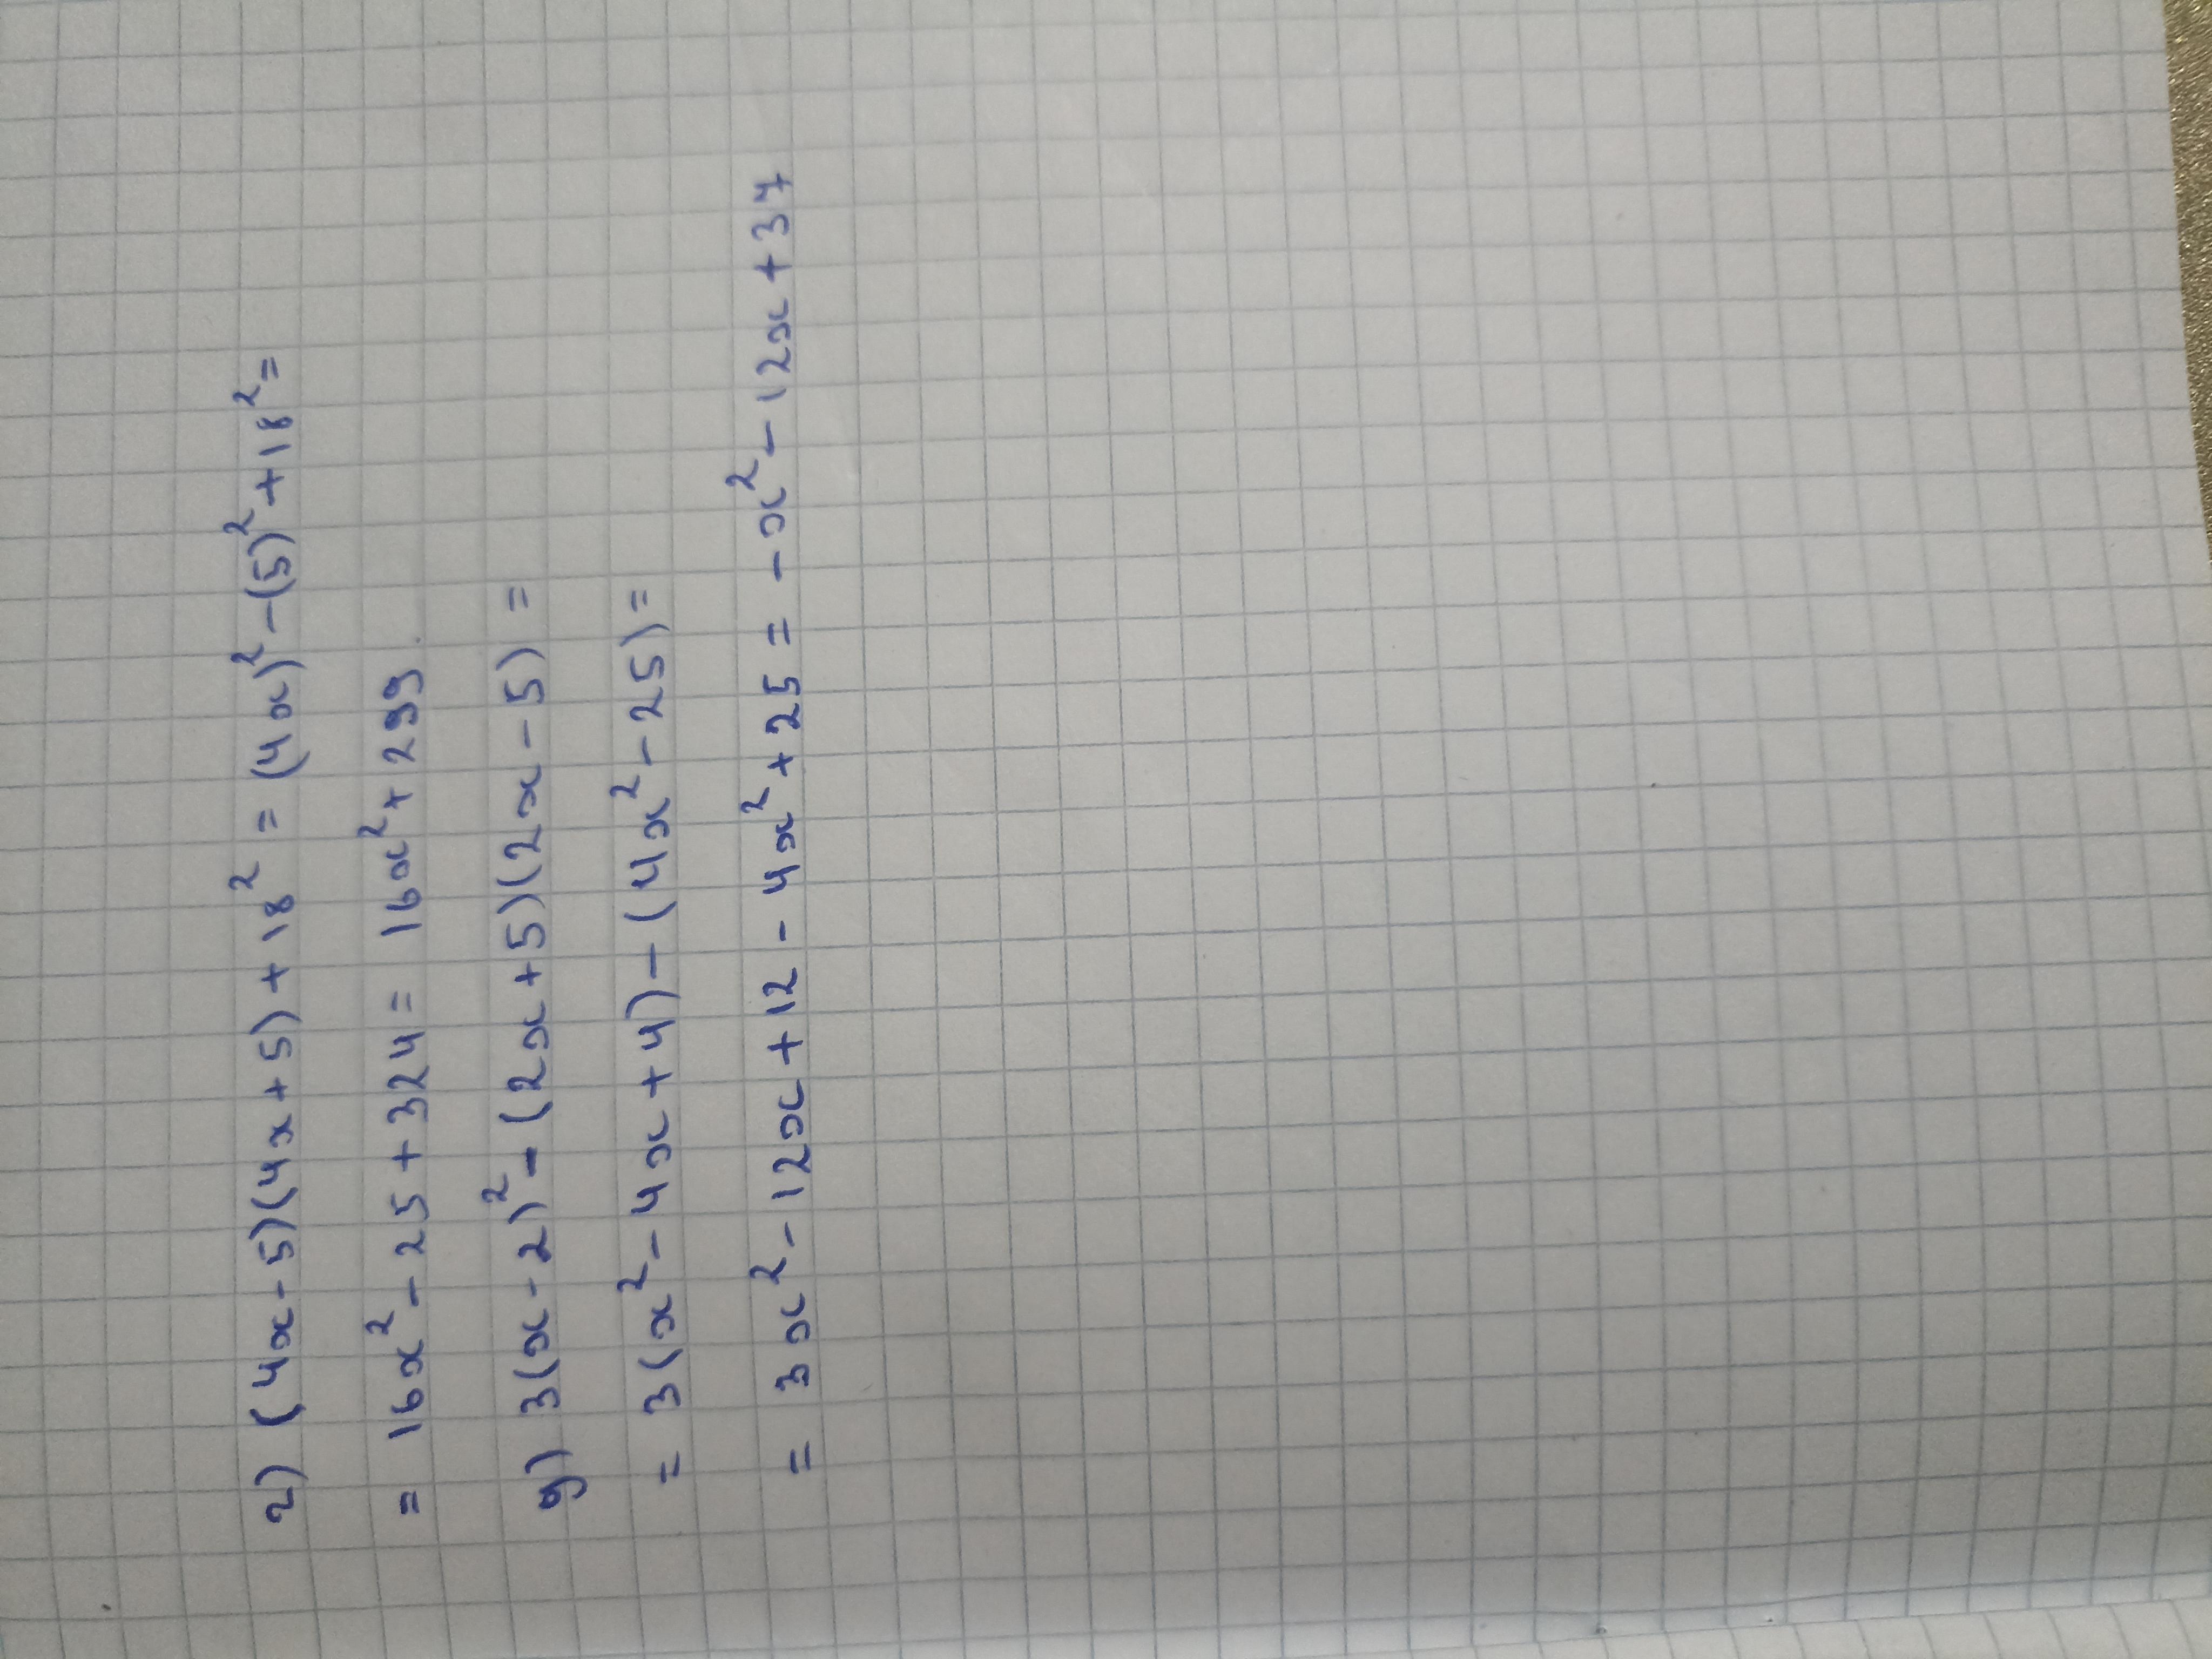 г) (4x-5)(4x+5)+18² = (4x)²-(5)²+18²=
= 16x²-25+324= 16x²+299.
д) 3(x-2)²-(2x+5)(2x-5)=
= 3(x²-4x+4)-(4x²-25)=
= 3x²-12x+12-4x²+25=-x²-12x+37